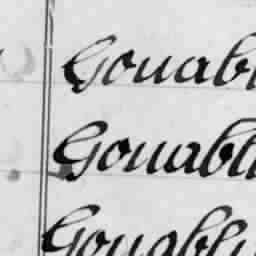 Gouabl
Gouabli
Gouabli